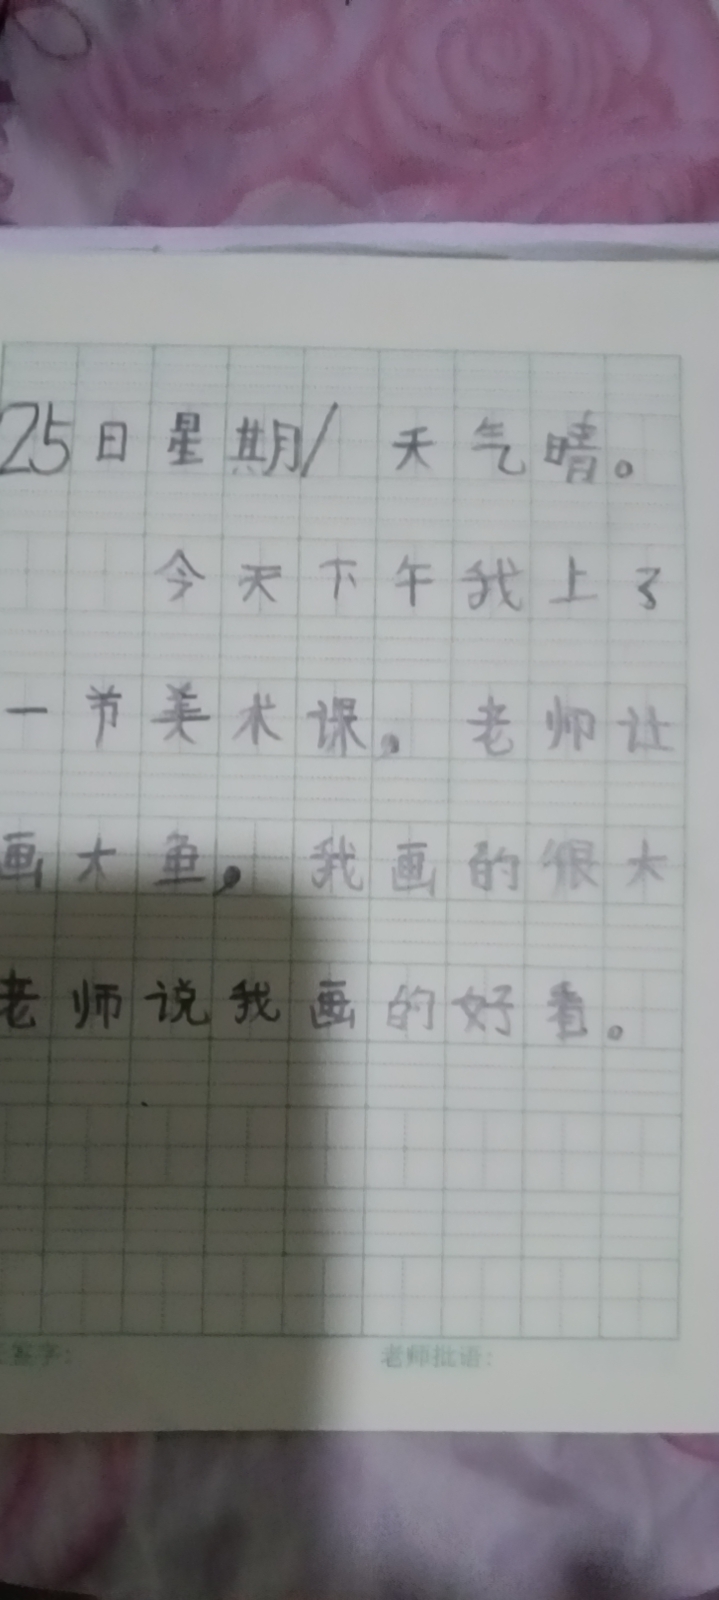 25日星期/ 天气晴。
今天下午我上了
一节美术课。老师让
画大鱼，我画的很大
老师说我画的好看。
签字： 老师批语：